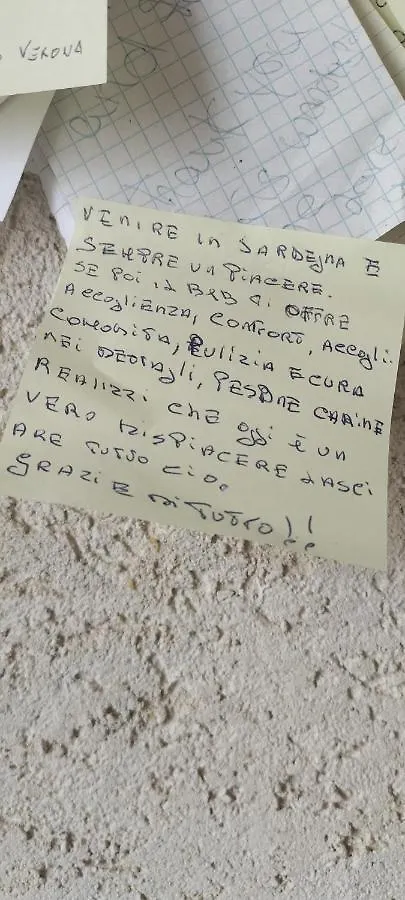 VERONA
VENIRE IN SARDEGNA E
SEMPRE UN PIACERE.
SE POI IL B&B TI OFFRE
ACCOGLIENZA, COMFORT, ACCOGLI.
COMODITA, PULIZIA E CURA
NEI DETTAGLI, PERSONE CARINE
REALIZZI CHE OGGI È UN
VERO DISPIACERE LASCI
ARE TUTTO CIO.
GRAZIE DI TUTTO!!